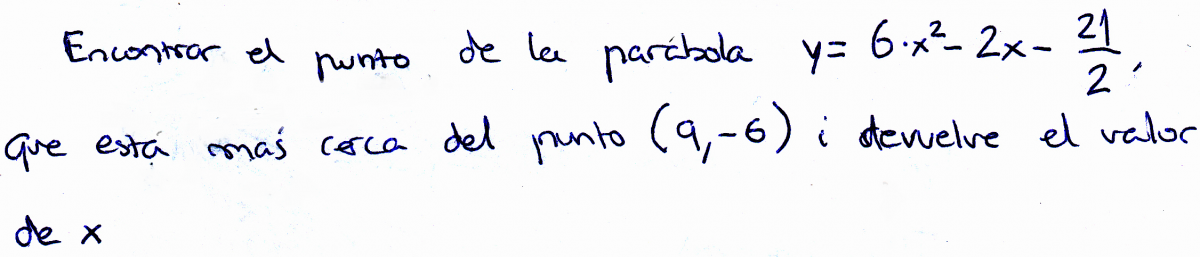 Encontrar el punto de la parábola y= 6·x²- 2x- 21/2,
que está más cerca del punto (9,-6) i devuelve el valor
de x